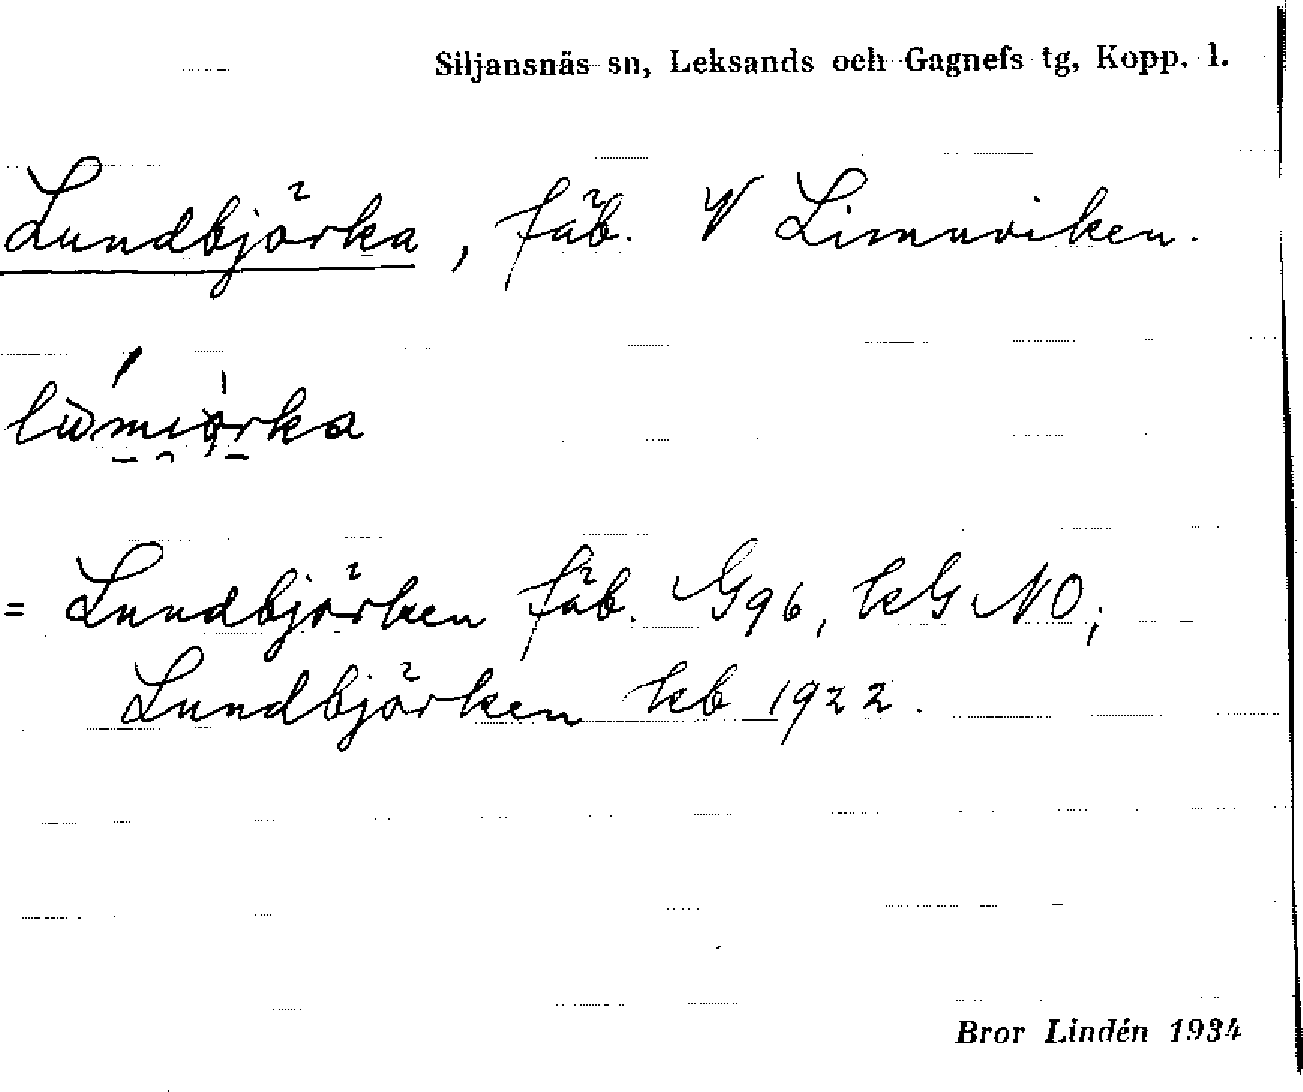 Siljansnäs sn, Leksands och Gagnefs tg, Kopp. l.
Lundbjörka, fäb. V Limnviken.
= Lundbjörken fäb. G96, kG NO;
Lundbjörken kb 1922.
Bror Lindén 1934